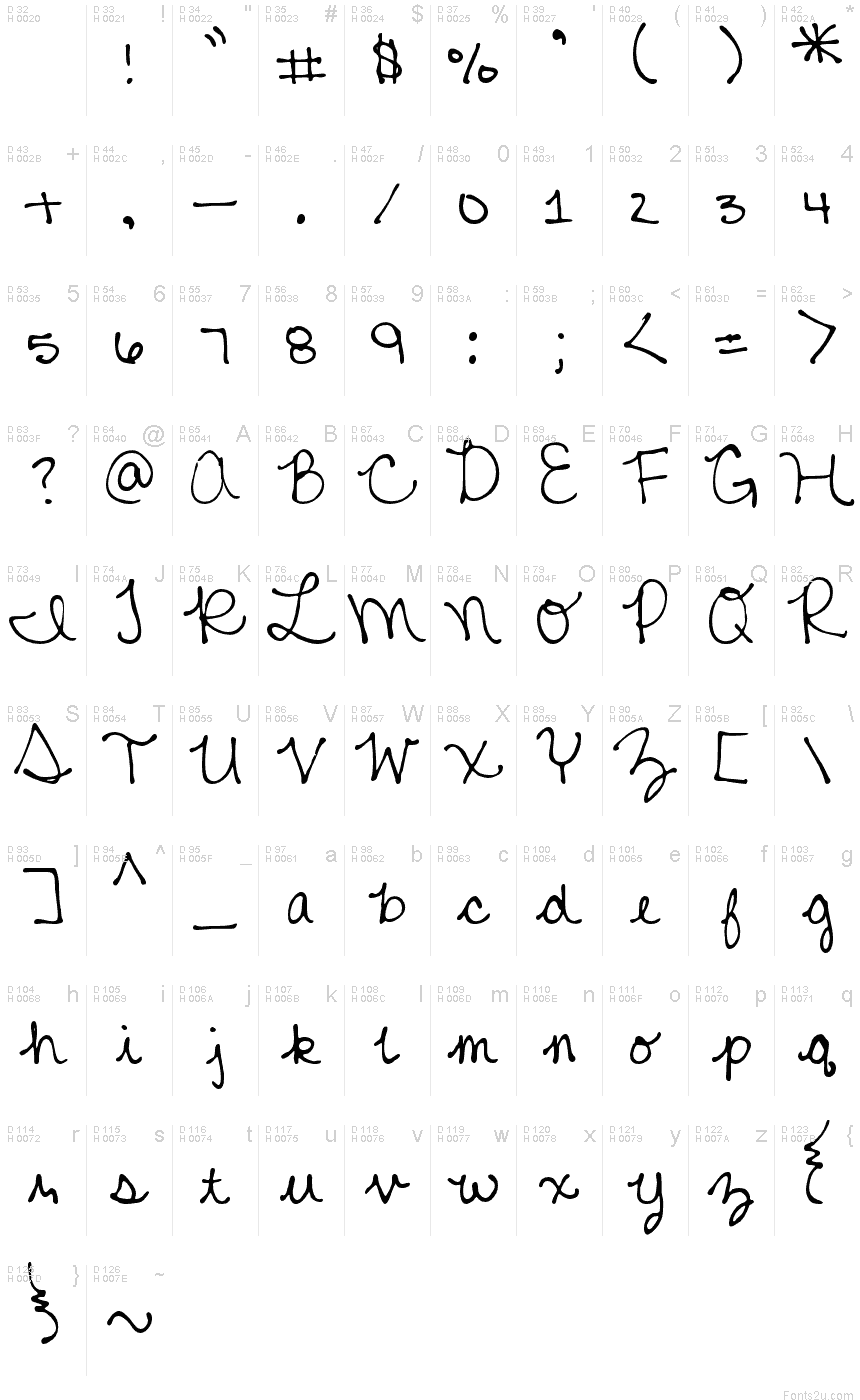 D 32 H 0020 D 33 H 0021 ! D 34 H 0022 " D 35 H 0023 # D 36 H 0024 $ D 37 H 0025 % D 39 H 0027 ' D 40 H 0028 ( D 41 H 0029 ) D 42 H 002A *
! " # $ % ' ( ) *
D 43 H 002B + D 44 H 002C , D 45 H 002D - D 46 H 002E . D 47 H 002F / D 48 H 0030 0 D 49 H 0031 1 D 50 H 0032 2 D 51 H 0033 3 D 52 H 0034 4
+ , - . / 0 1 2 3 4
D 53 H 0035 5 D 54 H 0036 6 D 55 H 0037 7 D 56 H 0038 8 D 57 H 0039 9 D 58 H 003A : D 59 H 003B ; D 60 H 003C < D 61 H 003D = D 62 H 003E >
5 6 7 8 9 : ; < = >
D 63 H 003F ? D 64 H 0040 @ D 65 H 0041 A D 66 H 0042 B D 67 H 0043 C D 68 H 0044 D D 69 H 0045 E D 70 H 0046 F D 71 H 0047 G D 72 H 0048 H
? @ A B C D E F G H
D 73 H 0049 I D 74 H 004A J D 75 H 004B K D 76 H 004C L D 77 H 004D M D 78 H 004E N D 79 H 004F O D 80 H 0050 P D 81 H 0051 Q D 82 H 0052 R
I J K L M N O P Q R
D 83 H 0053 S D 84 H 0054 T D 85 H 0055 U D 86 H 0056 V D 87 H 0057 W D 88 H 0058 X D 89 H 0059 Y D 90 H 005A Z D 91 H 005B [ D 92 H 005C \
S T U V W X Y Z [ \
D 93 H 005D ] D 94 H 005E ^ D 95 H 005F _ D 97 H 0061 a D 98 H 0062 b D 99 H 0063 c D 100 H 0064 d D 101 H 0065 e D 102 H 0066 f D 103 H 0067 g
] ^ _ a b c d e f g
D 104 H 0068 h D 105 H 0069 i D 106 H 006A j D 107 H 006B k D 108 H 006C l D 109 H 006D m D 110 H 006E n D 111 H 006F o D 112 H 0070 p D 113 H 0071 q
h i j k l m n o p q
D 114 H 0072 r D 115 H 0073 s D 116 H 0074 t D 117 H 0075 u D 118 H 0076 v D 119 H 0077 w D 120 H 0078 x D 121 H 0079 y D 122 H 007A z D 123 H 007B {
r s t u v w x y z {
D 125 H 007D } D 126 H 007E ~
} ~
Fonts2u.com